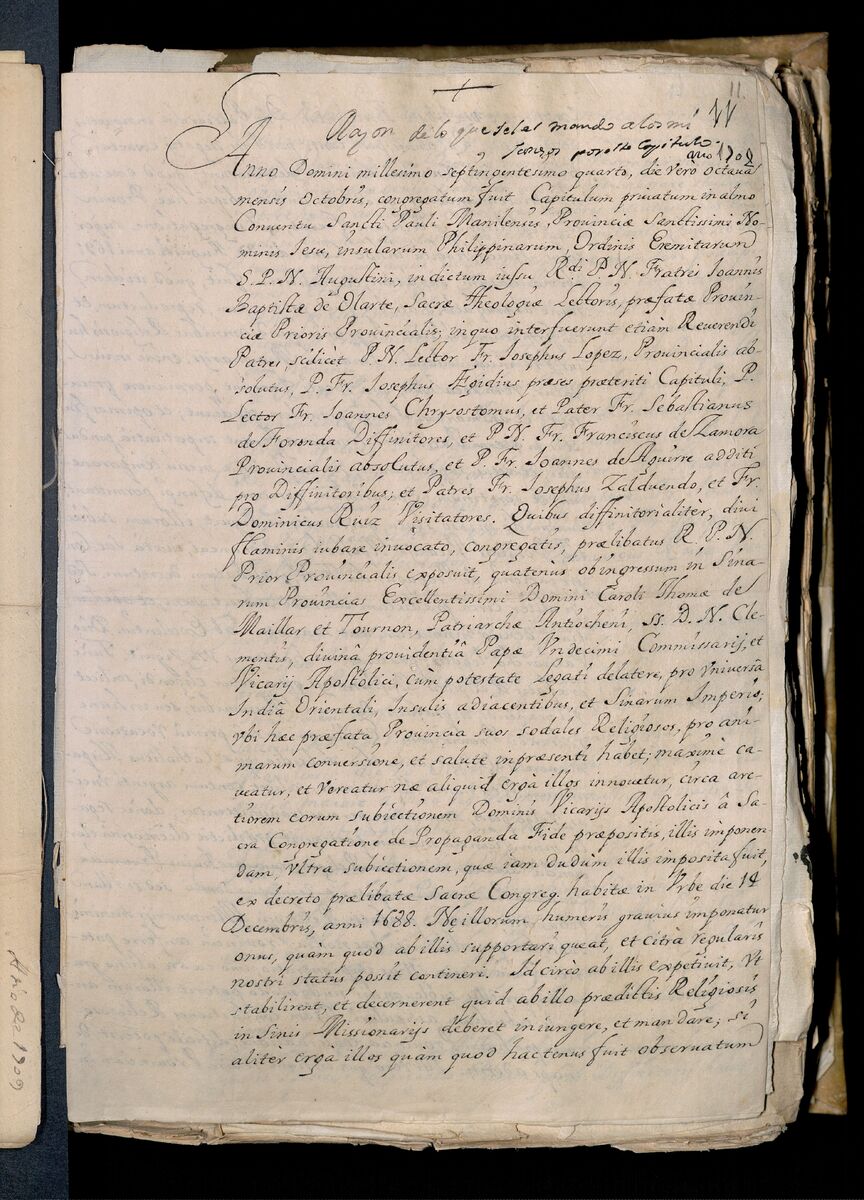 11.
11
Razon de lo que se les mando a los mi
por este Capitulo
año 1702
Anno Domini millesimo septingentesimo quarto, die vero octava
mensis Octobris, congregatum fuit Capitulum priuatum in almo
Conventu Sancti Pauli Manilensis, Provinciæ Sanctissimi No-
minis Iesu, insularum Philippinarum, Ordinis Eremitarum
S. P. N. Augustini, indictum iussu Rdi P. N. Fratris Ioannis
Baptistæ de Olarte, Sacræ Theologiæ Lectoris, præfatæ Provin-
ciæ Prioris Provincialis; in quo interfuerunt etiàm Reverendi
Patres, scilicet P. N. Lector Fr. Iosephus Lopez, Provincialis ab-
solutus, P. Fr. Iosephus Ægidius præses præteriti Capituli, P.
Lector Fr. Ioannes Chrysostomus, et Pater Fr. Sebastianus
de Foronda Diffinitores, et P. N. Fr. Franciscus de Zamora
Provincialis absolutus, et P. Fr. Ioannes de Aguirre additi
pro Diffinitoribus; et Patres Fr. Iosephus Zalduendo, et Fr.
Dominicus Ruiz Visitatores. Quibus diffinitorialitèr, divi
flaminis iubare invocato, congregatis, prælibatus R. P. N.
Prior Provincialis exposuit, quatenus ob ingressum in Sina-
rum Provincias Excellentissimi Domini Caroli Thomæ de
Maillar et Tournon, Patriarchæ Antiocheni, ss. D. N. Cle-
mentis, divinâ providentiâ Papæ Vndecimi Commissarij, et
Vicarij Apostolici, cùm potestate Legati delatere, pro vniversâ
Indiâ Orientali, Insulis adiacentibus, et Sinarum Imperio;
vbi hæc præfata Provincia suos sodales Religiosos, pro ani-
marum conversione, et salute inpræsenti habet; maximè ca-
veatur, et vereatur næ aliquid ergà illos innovetur, circa arc-
tiorem eorum subiectionem Dominis Vicarijs Apostolicis â Sa-
crâ Congregatione de Propaganda Fide præpositis, illis imponen-
dam, vltra subiectionem, quæ iam dudùm illis imposita fuit,
ex decreto prælibatæ Sacræ Congreg. habitæ in Vrbe die 14
Decembris, anni 1688. Nę illorum humeris gravius imponatur
onus, quàm quod ab illis supportari queat, et citrà regularis
nostri status possit contineri. Id circò ab illis expetivit, vt
stabilirent, et decernerent quid ab illo prædictis Religiosis
in Sinis Missionarijs deberet iniungere, et mandare; si
aliter ergà illos quàm quod hactenus fuit observatum